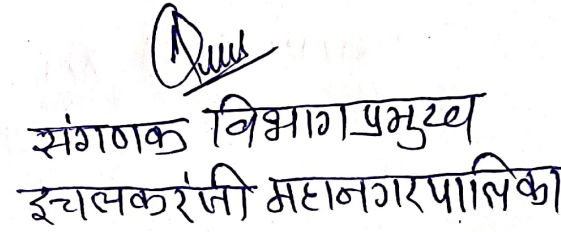 संगणक विभाग प्रमुख
इचलकरंजी महानगरपालिका